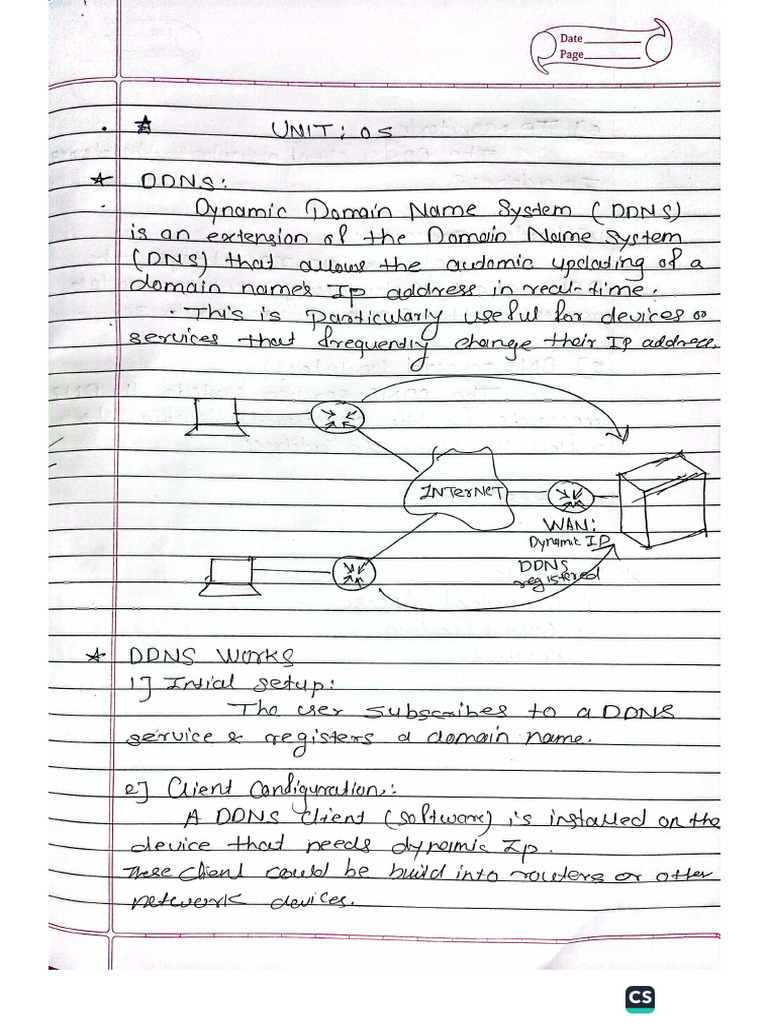 Date
Page
UNIT: 05
DDNS:
Dynamic Domain Name System (DDNS)
is an extension of the Domain Name System
(DNS) that allows the automic updating of a
domain name's Ip address in real-time.
. This is particularly useful for devices or
services that frequently change their Ip address.
INTerNET
WAN:
Dynamic IP
DDNS
registered
DDNS Works
1] Intial setup:
The user subscribes to a DDNS
service & registers a domain name.
2] Client Configuration:
A DDNS client (software) is installed on the
device that needs dynamic Ip.
These client could be build into routers or other
network devices.
CS